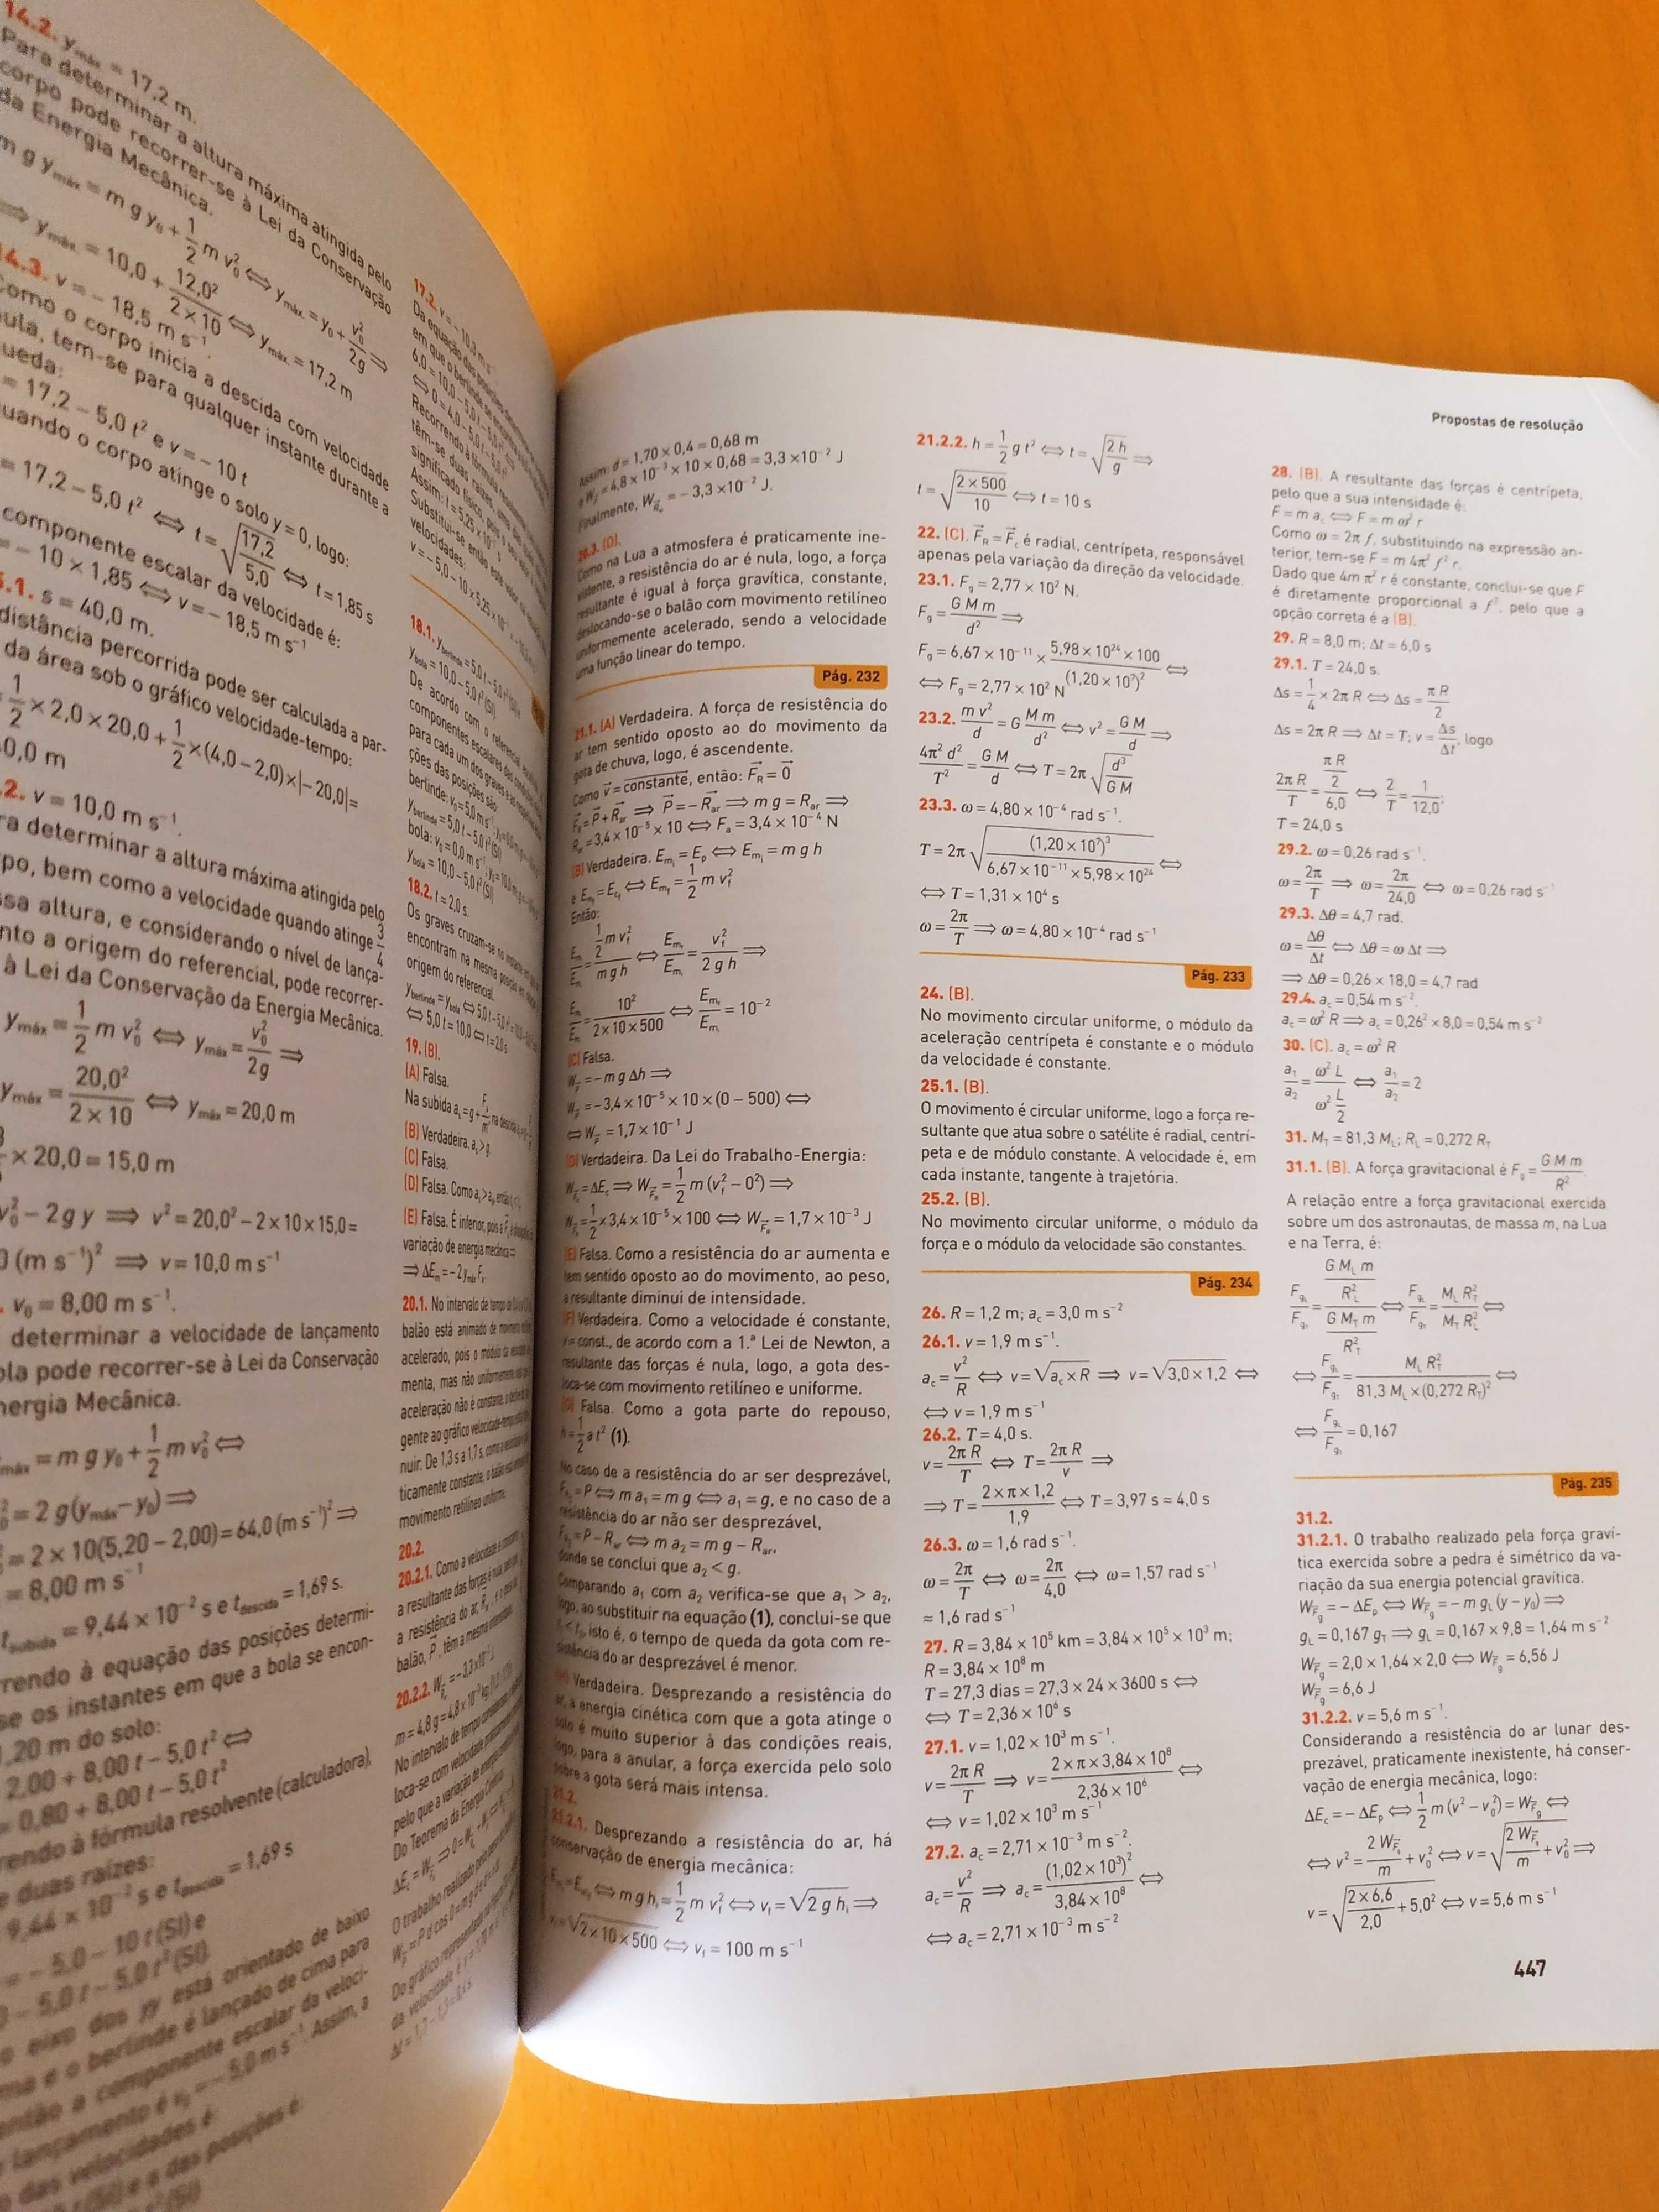 14.2. y_máx = 17,2 m.
Para determinar a altura máxima atingida pelo
corpo pode recorrer-se à Lei da Conservação
da Energia Mecânica.
m g y_máx = m g y₀ + 1/2 m v₀² ⟺ y_máx. = y₀ + v₀²/2g ⟹
⟹ y_máx. = 10,0 + 12,0²/(2 × 10) ⟺ y_máx. = 17,2 m
14.3. v = − 18,5 m s⁻¹.
Como o corpo inicia a descida com velocidade
nula, tem-se para qualquer instante durante a
queda:
= 17,2 − 5,0 t² e v = − 10 t
quando o corpo atinge o solo y = 0, logo:
= 17,2 − 5,0 t² ⟺ t = √(17,2/5,0) ⟺ t = 1,85 s
componente escalar da velocidade é:
= − 10 × 1,85 ⟺ v = − 18,5 m s⁻¹
.1. s = 40,0 m.
distância percorrida pode ser calculada a par-
da área sob o gráfico velocidade-tempo:
1/2 × 2,0 × 20,0 + 1/2 × (4,0 − 2,0) × |− 20,0| =
0,0 m
.2. v = 10,0 m s⁻¹.
ra determinar a altura máxima atingida pelo
po, bem como a velocidade quando atinge 3/4
ssa altura, e considerando o nível de lança-
nto a origem do referencial, pode recorrer-
à Lei da Conservação da Energia Mecânica.
y_máx = 1/2 m v₀² ⟺ y_máx = v₀²/2g ⟹
y_máx = 20,0²/(2 × 10) ⟺ y_máx = 20,0 m
× 20,0 = 15,0 m
v₀² − 2 g y ⟹ v² = 20,0² − 2 × 10 × 15,0 =
0 (m s⁻¹)² ⟹ v = 10,0 m s⁻¹
. v₀ = 8,00 m s⁻¹.
determinar a velocidade de lançamento
ola pode recorrer-se à Lei da Conservação
nergia Mecânica.
máx = m g y₀ + 1/2 m v₀² ⟺
= 2 g (y_máx − y₀) ⟹
= 2 × 10 (5,20 − 2,00) = 64,0 (m s⁻¹)² ⟹
= 8,00 m s⁻¹
t_subida = 9,44 × 10⁻² s e t_descida = 1,69 s.
rrendo à equação das posições determi-
se os instantes em que a bola se encon-
,20 m do solo:
2,00 + 8,00 t − 5,0 t² ⟺
= 0,80 + 8,00 t − 5,0 t²
rendo à fórmula resolvente (calculadora),
e duas raízes:
9,44 × 10⁻² s e t_descida = 1,69 s
= − 5,0 − 10 t (SI) e
− 5,0 t − 5,0 t² (SI)
o eixo dos yy está orientado de baixo
ma e o berlinde é lançado de cima para
então a componente escalar da veloci-
lançamento é v₀ = − 5,0 m s⁻¹. Assim, a
das velocidades é:
(SI) e a das posições é:
17.2. v = − 10,3 m s⁻¹
Da equação das posições
em que o berlinde se encontra
6,0 = 10,0 − 5,0 t − 5,0 t² ⟺
⟺ 0 = 4,0 − 5,0 t − 5,0 t²
Recorrendo à fórmula resolvente
têm-se duas raízes, uma
significado físico, pois o seu valor
Assim: t = 5,25 × 10⁻¹ s
Substitui-se então este valor na
velocidades:
v = − 5,0 − 10 × 5,25 × 10⁻¹
18.1. y_berlinde = 5,0 t − 5,0 t² (SI) e
y_bola = 10,0 − 5,0 t² (SI)
De acordo com o referencial
componentes escalares das
para cada um dos graves e as
ções das posições são:
berlinde: v₀ = 5,0 m s⁻¹
y_berlinde = 5,0 t − 5,0 t² (SI)
bola: v₀ = 0,0 m s⁻¹
y_bola = 10,0 − 5,0 t² (SI)
18.2. t = 2,0 s.
Os graves cruzam-se no instante em que se
encontram na mesma posição
origem do referencial.
y_berlinde = y_bola ⟺ 5,0 t − 5,0 t² = 10,0
⟺ 5,0 t = 10,0 ⟺ t = 2,0 s
19. (B).
(A) Falsa.
Na subida
(B) Verdadeira.
(C) Falsa.
(D) Falsa. Como
(E) Falsa. É inferior, pois a
variação de energia mecânica
⟹ ΔE_m = − 2 y_máx F_r
20.1. No intervalo de tempo de
balão está animado de movimento
acelerado, pois o módulo da velocidade
menta, mas não uniformemente
aceleração não é constante, o declive da
gente ao gráfico velocidade-tempo
nuir. De 1,3 s a 1,7 s, como a velocidade
ticamente constante, o balão
movimento retilíneo uniforme.
20.2.
20.2.1. Como a velocidade é constante
a resultante das forças é nula
a resistência do ar,
balão, P, têm a mesma intensidade.
20.2.2. W = − 3,3 × 10⁻² J
m = 4,8 g = 4,8 × 10⁻³ kg
No intervalo de tempo considerado
loca-se com velocidade praticamente
pelo que a variação de energia
Do Teorema da Energia Cinética
O trabalho realizado pelo peso
Do gráfico representado
da velocidade é
Assim: d = 1,70 × 0,4 = 0,68 m
e W_P = 4,8 × 10⁻³ × 10 × 0,68 = 3,3 × 10⁻² J
Finalmente, W = − 3,3 × 10⁻² J.
20.3. (D).
Como na Lua a atmosfera é praticamente ine-
xistente, a resistência do ar é nula, logo, a força
resultante é igual à força gravítica, constante,
deslocando-se o balão com movimento retilíneo
uniformemente acelerado, sendo a velocidade
uma função linear do tempo.
Pág. 232
21.1. (A) Verdadeira. A força de resistência do
ar tem sentido oposto ao do movimento da
gota de chuva, logo, é ascendente.
Como v⃗ = constante, então: F⃗_R = 0⃗
F⃗_R = P⃗ + R⃗_ar ⟹ P⃗ = − R⃗_ar ⟹ m g = R_ar ⟹
R_ar = 3,4 × 10⁻⁵ × 10 ⟺ F_a = 3,4 × 10⁻⁴ N
(B) Verdadeira. E_mᵢ = E_p ⟺ E_mᵢ = m g h
e E_m_f = E_c_f ⟺ E_m_f = 1/2 m v_f²
Então:
E_m_f/E_mᵢ = (1/2 m v_f²)/(m g h) ⟺ E_m_f/E_mᵢ = v_f²/(2 g h) ⟹
E_m_f/E_mᵢ = 10²/(2 × 10 × 500) ⟺ E_m_f/E_mᵢ = 10⁻²
(C) Falsa.
W_P⃗ = − m g Δh ⟹
W_P⃗ = − 3,4 × 10⁻⁵ × 10 × (0 − 500) ⟺
⟺ W_P⃗ = 1,7 × 10⁻¹ J
(D) Verdadeira. Da Lei do Trabalho-Energia:
W_F⃗_R = ΔE_c ⟹ W_F⃗_R = 1/2 m (v_f² − 0²) ⟹
W_F⃗_R = 1/2 × 3,4 × 10⁻⁵ × 100 ⟺ W_F⃗_R = 1,7 × 10⁻³ J
(E) Falsa. Como a resistência do ar aumenta e
tem sentido oposto ao do movimento, ao peso,
a resultante diminui de intensidade.
(F) Verdadeira. Como a velocidade é constante,
v = const., de acordo com a 1.ª Lei de Newton, a
resultante das forças é nula, logo, a gota des-
loca-se com movimento retilíneo e uniforme.
(G) Falsa. Como a gota parte do repouso,
h = 1/2 a t² (1).
No caso de a resistência do ar ser desprezável,
F_R₁ = P ⟺ m a₁ = m g ⟺ a₁ = g, e no caso de a
resistência do ar não ser desprezável,
F_R₂ = P − R_ar ⟺ m a₂ = m g − R_ar,
donde se conclui que a₂ < g.
Comparando a₁ com a₂ verifica-se que a₁ > a₂,
logo, ao substituir na equação (1), conclui-se que
t₁ < t₂, isto é, o tempo de queda da gota com re-
sistência do ar desprezável é menor.
(H) Verdadeira. Desprezando a resistência do
ar, a energia cinética com que a gota atinge o
solo é muito superior à das condições reais,
logo, para a anular, a força exercida pelo solo
sobre a gota será mais intensa.
21.2.
21.2.1. Desprezando a resistência do ar, há
conservação de energia mecânica:
E_mᵢ = E_m_f ⟺ m g hᵢ = 1/2 m v_f² ⟺ v_f = √(2 g hᵢ) ⟹
v_f = √(2 × 10 × 500) ⟺ v_f = 100 m s⁻¹
Propostas de resolução
21.2.2. h = 1/2 g t² ⟺ t = √(2 h/g) ⟹
t = √(2 × 500/10) ⟺ t = 10 s
22. (C). F⃗_R = F⃗_c é radial, centrípeta, responsável
apenas pela variação da direção da velocidade.
23.1. F_g = 2,77 × 10² N.
F_g = G M m/d² ⟹
F_g = 6,67 × 10⁻¹¹ × 5,98 × 10²⁴ × 100/(1,20 × 10⁷)² ⟺
⟺ F_g = 2,77 × 10² N
23.2. m v²/d = G M m/d² ⟺ v² = G M/d ⟹
4π² d²/T² = G M/d ⟺ T = 2π √(d³/G M)
23.3. ω = 4,80 × 10⁻⁴ rad s⁻¹.
T = 2π √((1,20 × 10⁷)³/(6,67 × 10⁻¹¹ × 5,98 × 10²⁴)) ⟺
⟺ T = 1,31 × 10⁴ s
ω = 2π/T ⟹ ω = 4,80 × 10⁻⁴ rad s⁻¹
Pág. 233
24. (B).
No movimento circular uniforme, o módulo da
aceleração centrípeta é constante e o módulo
da velocidade é constante.
25.1. (B).
O movimento é circular uniforme, logo a força re-
sultante que atua sobre o satélite é radial, centrí-
peta e de módulo constante. A velocidade é, em
cada instante, tangente à trajetória.
25.2. (B).
No movimento circular uniforme, o módulo da
força e o módulo da velocidade são constantes.
Pág. 234
26. R = 1,2 m; a_c = 3,0 m s⁻²
26.1. v = 1,9 m s⁻¹.
a_c = v²/R ⟺ v = √(a_c × R) ⟹ v = √(3,0 × 1,2) ⟺
⟺ v = 1,9 m s⁻¹
26.2. T = 4,0 s.
v = 2π R/T ⟺ T = 2π R/v ⟹
⟹ T = 2 × π × 1,2/1,9 ⟺ T = 3,97 s ≈ 4,0 s
26.3. ω = 1,6 rad s⁻¹.
ω = 2π/T ⟺ ω = 2π/4,0 ⟺ ω = 1,57 rad s⁻¹
≈ 1,6 rad s⁻¹
27. R = 3,84 × 10⁵ km = 3,84 × 10⁵ × 10³ m;
R = 3,84 × 10⁸ m
T = 27,3 dias = 27,3 × 24 × 3600 s ⟺
⟺ T = 2,36 × 10⁶ s
27.1. v = 1,02 × 10³ m s⁻¹.
v = 2π R/T ⟹ v = 2 × π × 3,84 × 10⁸/2,36 × 10⁶ ⟺
⟺ v = 1,02 × 10³ m s⁻¹
27.2. a_c = 2,71 × 10⁻³ m s⁻².
a_c = v²/R ⟹ a_c = (1,02 × 10³)²/3,84 × 10⁸ ⟺
⟺ a_c = 2,71 × 10⁻³ m s⁻²
28. (B). A resultante das forças é centrípeta,
pelo que a sua intensidade é:
F = m a_c ⟺ F = m ω² r
Como ω = 2π f, substituindo na expressão an-
terior, tem-se F = m 4π² f² r.
Dado que 4m π² r é constante, conclui-se que F
é diretamente proporcional a f², pelo que a
opção correta é a (B).
29. R = 8,0 m; Δt = 6,0 s
29.1. T = 24,0 s.
Δs = 1/4 × 2π R ⟺ Δs = π R/2
Δs = 2π R ⟹ Δt = T; v = Δs/Δt, logo
2π R/T = (π R/2)/6,0 ⟺ 2/T = 1/12,0;
T = 24,0 s
29.2. ω = 0,26 rad s⁻¹.
ω = 2π/T ⟹ ω = 2π/24,0 ⟺ ω = 0,26 rad s⁻¹
29.3. Δθ = 4,7 rad.
ω = Δθ/Δt ⟺ Δθ = ω Δt ⟹
⟹ Δθ = 0,26 × 18,0 = 4,7 rad
29.4. a_c = 0,54 m s⁻².
a_c = ω² R ⟹ a_c = 0,26² × 8,0 = 0,54 m s⁻²
30. (C). a_c = ω² R
a₁/a₂ = ω² L/(ω² L/2) ⟺ a₁/a₂ = 2
31. M_T = 81,3 M_L; R_L = 0,272 R_T
31.1. (B). A força gravitacional é F_g = G M m/R².
A relação entre a força gravitacional exercida
sobre um dos astronautas, de massa m, na Lua
e na Terra, é:
F_gL/F_gT = (G M_L m/R_L²)/(G M_T m/R_T²) ⟺ F_gL/F_gT = M_L R_T²/M_T R_L² ⟺
⟺ F_gL/F_gT = M_L R_T²/(81,3 M_L × (0,272 R_T)²) ⟺
⟺ F_gL/F_gT = 0,167
Pág. 235
31.2.
31.2.1. O trabalho realizado pela força graví-
tica exercida sobre a pedra é simétrico da va-
riação da sua energia potencial gravítica.
W_F⃗_g = − ΔE_p ⟺ W_F⃗_g = − m g_L (y − y₀) ⟹
g_L = 0,167 g_T ⟹ g_L = 0,167 × 9,8 = 1,64 m s⁻²
W_F⃗_g = 2,0 × 1,64 × 2,0 ⟺ W_F⃗_g = 6,56 J
W_F⃗_g = 6,6 J
31.2.2. v = 5,6 m s⁻¹.
Considerando a resistência do ar lunar des-
prezável, praticamente inexistente, há conser-
vação de energia mecânica, logo:
ΔE_c = − ΔE_p ⟺ 1/2 m (v² − v₀²) = W_F⃗_g ⟺
⟺ v² = 2 W_F⃗_g/m + v₀² ⟺ v = √(2 W_F⃗_g/m + v₀²) ⟹
v = √(2 × 6,6/2,0 + 5,0²) ⟺ v = 5,6 m s⁻¹
447